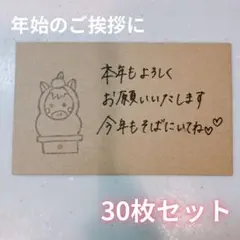 年始のご挨拶に
本年もよろしく
お願いいたします
今年もそばにいてね♡♡
30枚セット